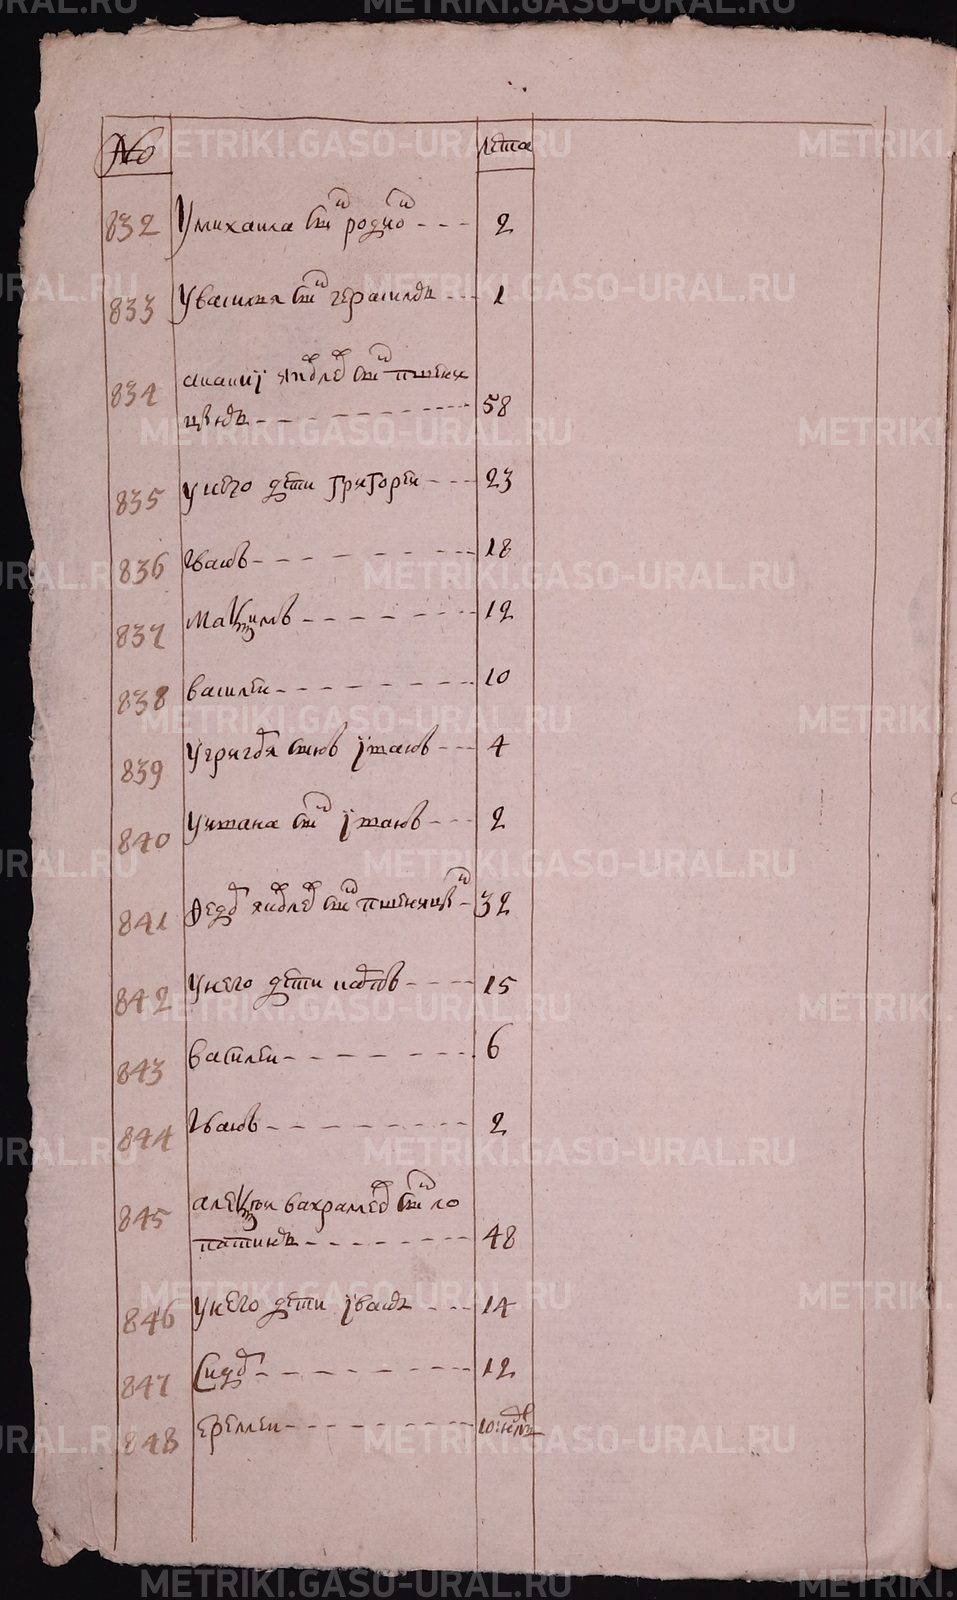 METRIKI.GASO-URAL.RU
№ лета
832 У михаила сынъ родио 2
833 У василья сынъ герасимъ 1
834 ананиj яковлев сынъ пшени
цынъ 58
835 у него дети григореи 23
836 Иванъ 18
837 Маѯимъ 12
838 василеи 10
839 У григоря сынъ jванъ 4
840 У сынъ jванъ 2
841 Ѳедоръ яковлев сынъ пшеницы 32
842 У него дети 15
843 василеи 6
844 Иванъ 2
845 алеѯеи вахрамеев сынъ ло
патинъ 48
846 У него дети jванъ 14
847 Сидоръ 12
848 еремеи 10: недель